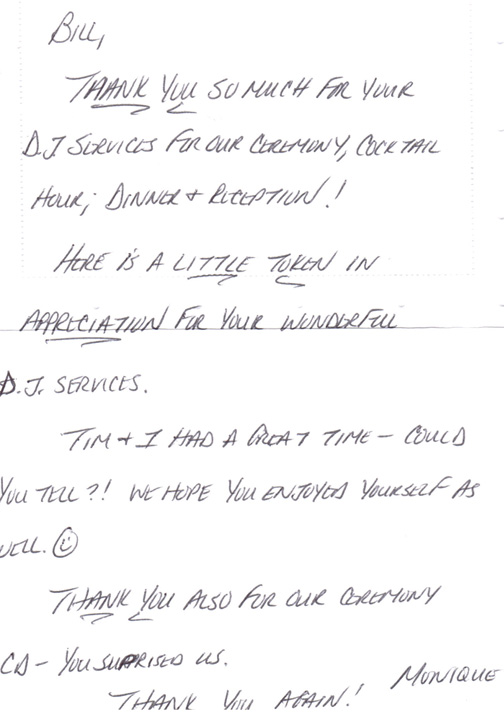 BILL,
THANK YOU SO MUCH FOR YOUR
D.J SERVICES FOR OUR CEREMONY, COCKTAIL
HOUR, DINNER + RECEPTION!
HERE IS A LITTLE TOKEN IN
APPRECIATION FOR YOUR WONDERFUL
D.J. SERVICES.
TIM + I HAD A GREAT TIME - COULD
YOU TELL?! WE HOPE YOU ENJOYED YOURSELF AS
WELL. ☺
THANK YOU ALSO FOR OUR CEREMONY
CD - YOU SURPRISED US.
THANK YOU AGAIN! MONIQUE